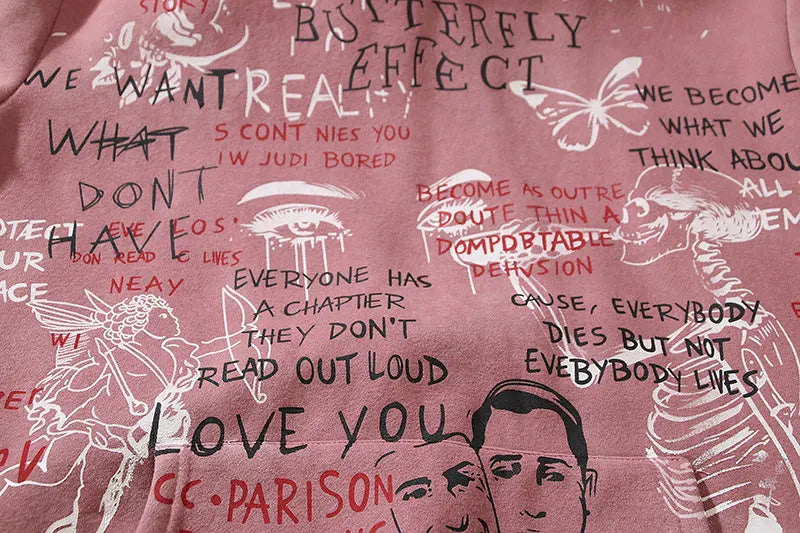 STORY
BUTTERFLY
EFFECT
WE WANT
REAL
WHAT
DONT
HAVE
S CONT NIES YOU
IW JUDI BORED
WE BECOME
WHAT WE
THINK ABOU
BECOME AS OUTRE
DOUTE THIN A
DOMPDBTABLE
DEHVSION
ALL
EM
OTECT
UR
ACE
EVE LOS'
DON READ C LIVES
NEAY
EVERYONE HAS
A CHAPTIER
THEY DON'T
READ OUT LOUD
CAUSE, EVERYBODY
DIES BUT NOT
EVEBYBODY LIVES
WI
LOVE YOU
CC•PARISON